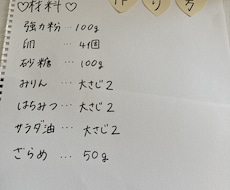 ♡材料♡
作り方
強力粉…100g
卵…4個
砂糖…100g
みりん…大さじ2
はちみつ…大さじ2
サラダ油…大さじ2
ざらめ…50g